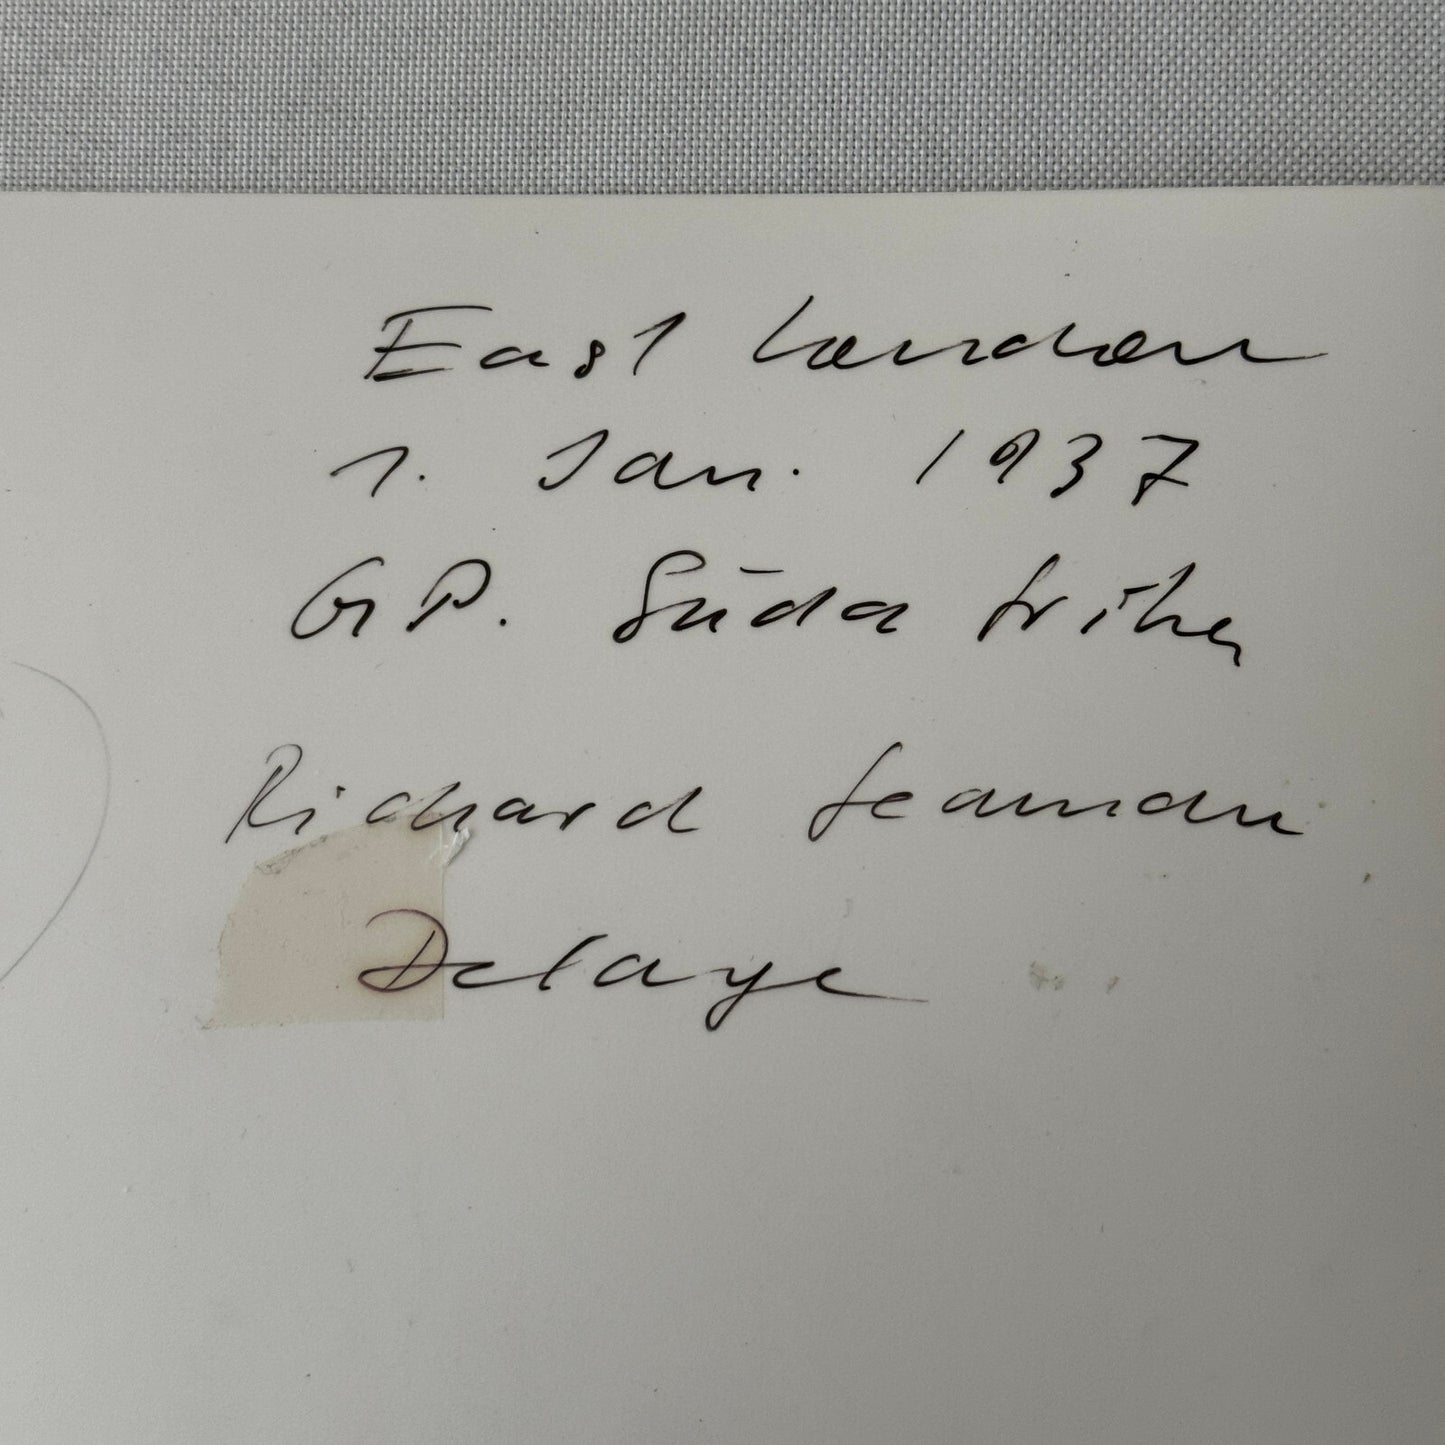 East London
1. Jan. 1937
GP. Südafrika
Richard Seaman
Delage